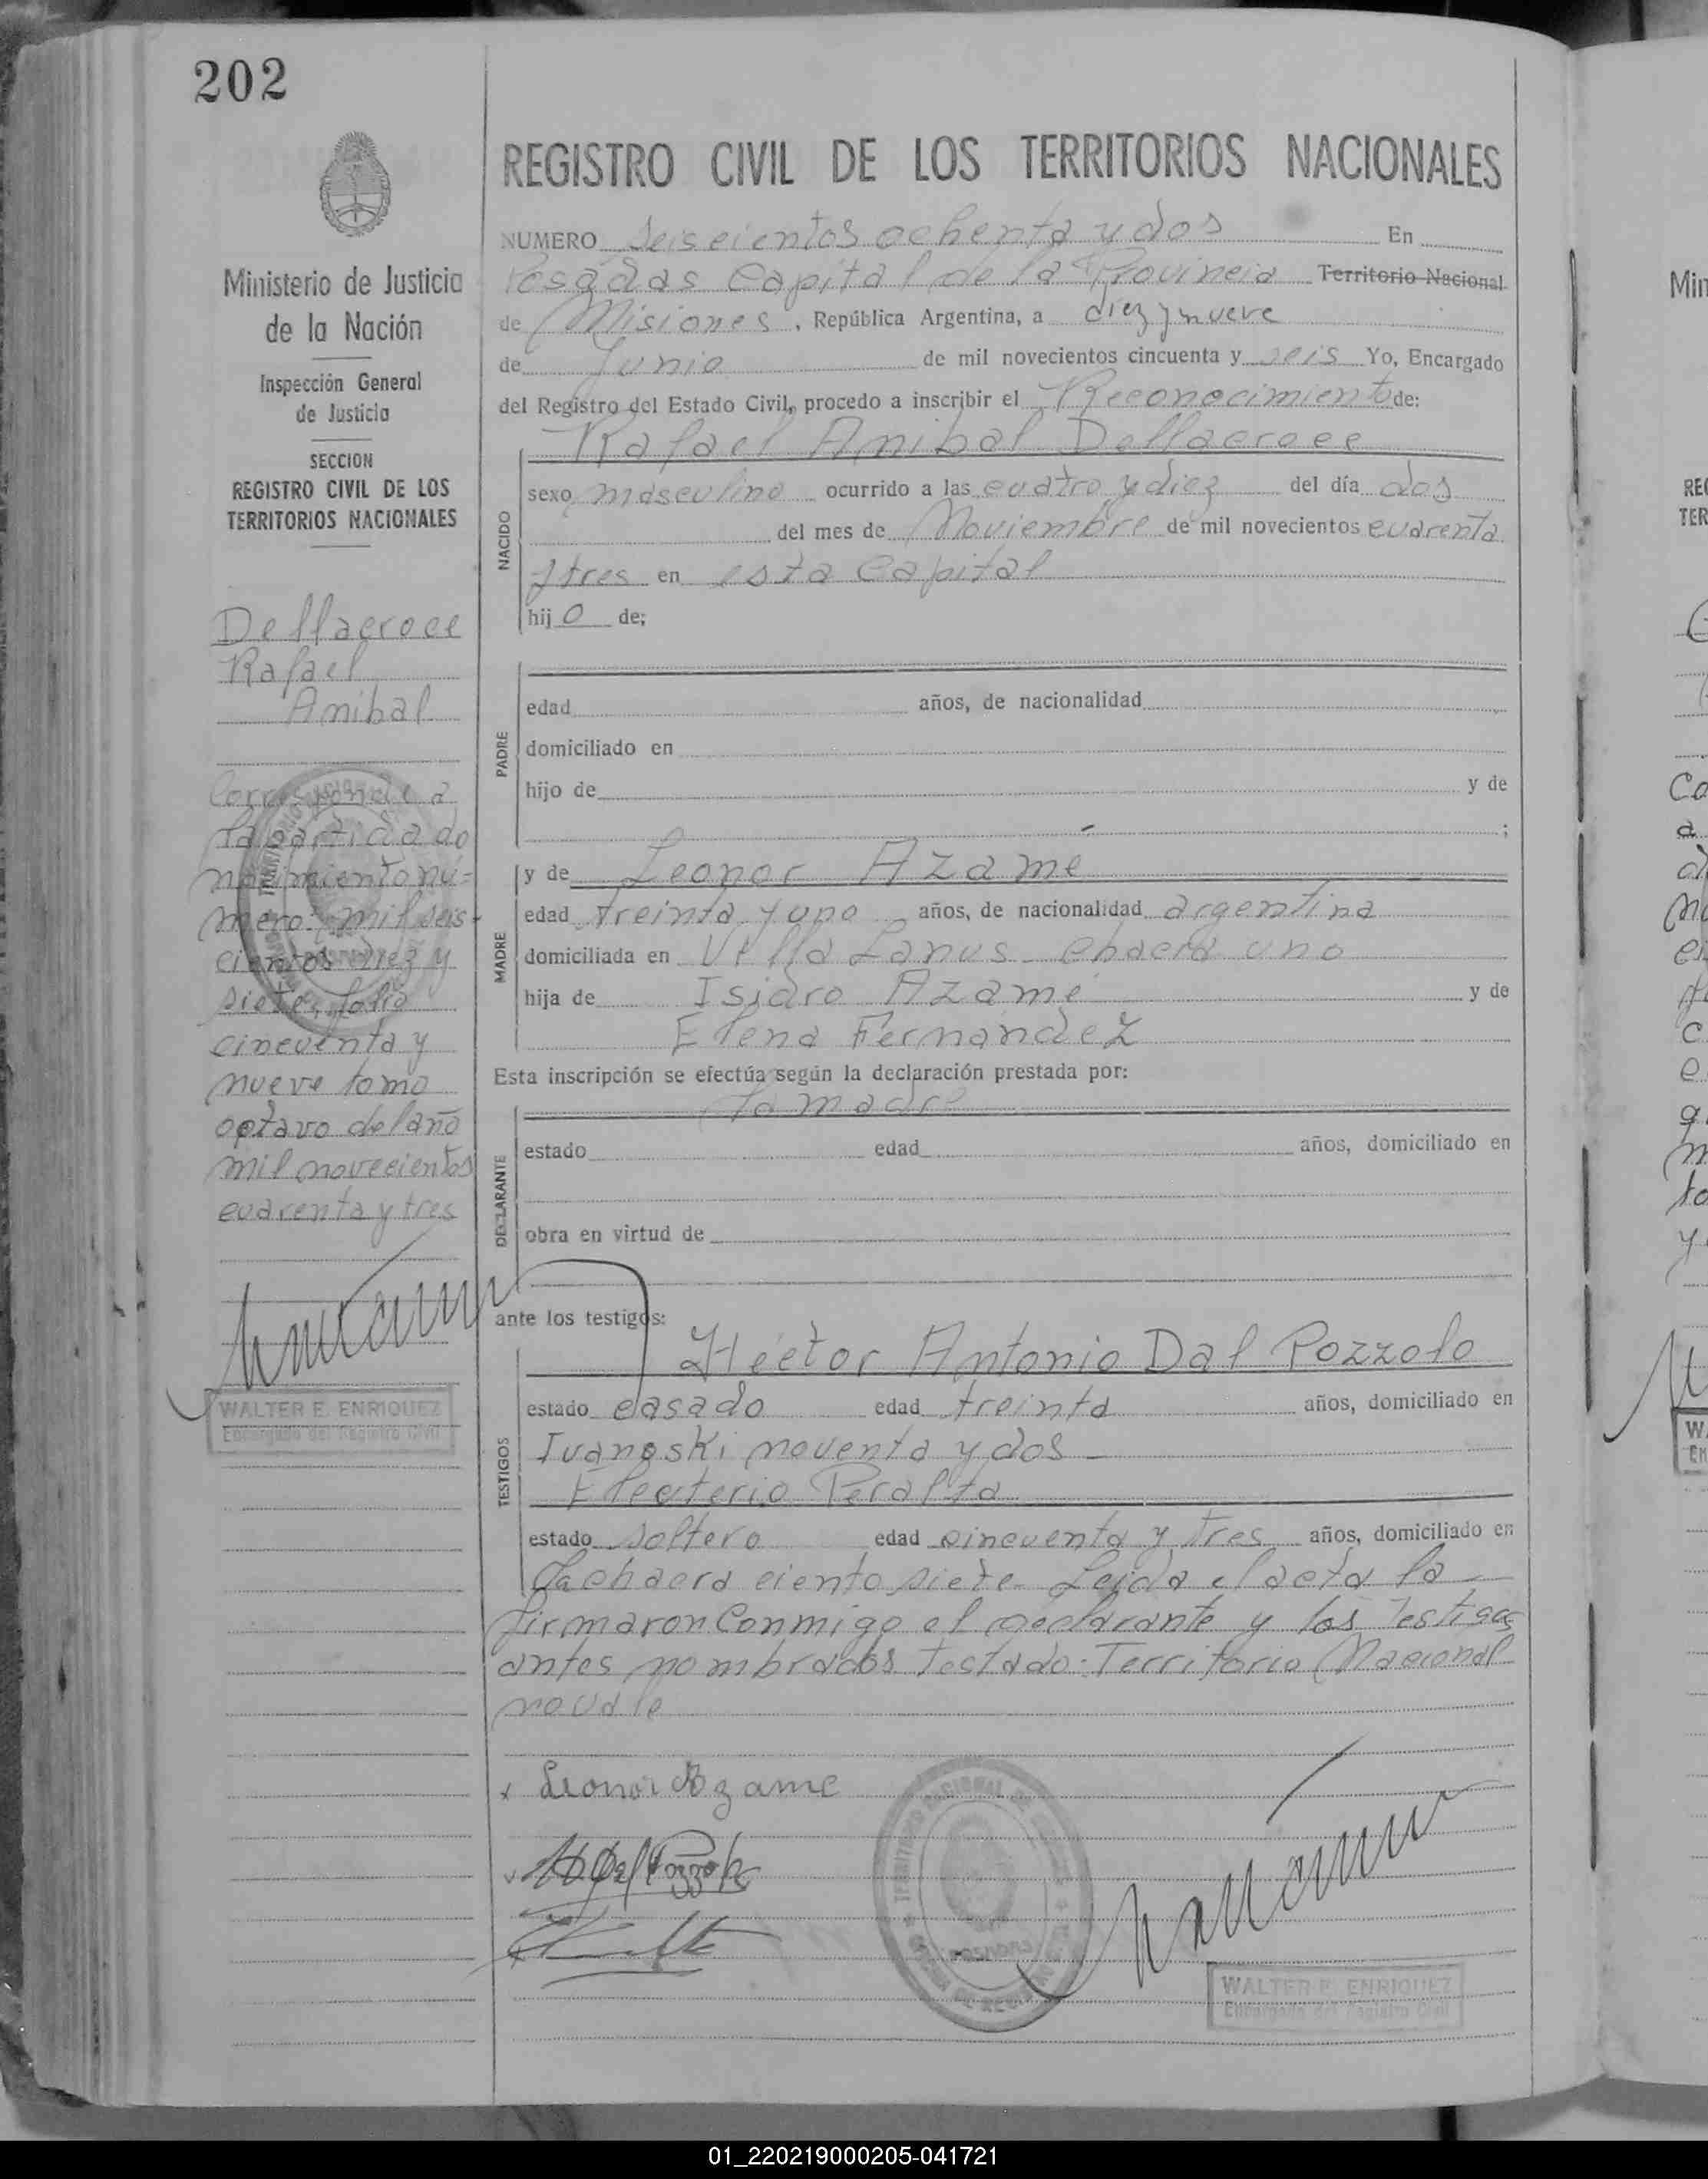 202
Ministerio de Justicia
de la Nación
Inspección General
de Justicia
SECCION
REGISTRO CIVIL DE LOS
TERRITORIOS NACIONALES
Dellacroce
Rafael
Anibal
Corresponde a
la partida de
nacimiento nú=
mero: mil seis-
cientos diez y
siete, folio
cincuenta y
nueve tomo
octavo del año
mil novecientos
cuarenta y tres
WALTER E. ENRIQUEZ
Encargado del Registro Civil
REGISTRO CIVIL DE LOS TERRITORIOS NACIONALES
NUMERO seiscientos ochenta y dos En
Posadas Capital de la Provincia Territorio Nacional
de Misiones, República Argentina, a diez y nueve
de Junio de mil novecientos cincuenta y seis Yo, Encargado
del Registro del Estado Civil, procedo a inscribir el Reconocimiento de:
Rafael Anibal Dellacroce
NACIDO
sexo masculino ocurrido a las cuatro y diez del día dos
del mes de Noviembre de mil novecientos cuarenta
y tres en esta Capital
hij o de;
PADRE
edad años, de nacionalidad
domiciliado en
hijo de y de
;
MADRE
y de Leonor Azamé
edad treinta y uno años, de nacionalidad argentina
domiciliada en Villa Lanus - chacra uno
hija de Isidro Azamé y de
Elena Fernandez
Esta inscripción se efectúa según la declaración prestada por:
la madre
DECLARANTE
estado edad años, domiciliado en
obra en virtud de
ante los testigos:
TESTIGOS
Héctor Antonio Dal Pozzolo
estado casado edad treinta años, domiciliado en
Ivanoski noventa y dos -
Eleuterio Peralta
estado soltero edad cincuenta y tres años, domiciliado en
la chacra ciento siete - Leida el acta la -
firmaron Conmigo el declarante y los testigos
antes nombrados Testado: Territorio Nacional
no vale
x Leonor Azame
POSADAS
WALTER E. ENRIQUEZ
Encargado del Registro Civil
Min
RE
TER
01_220219000205-041721